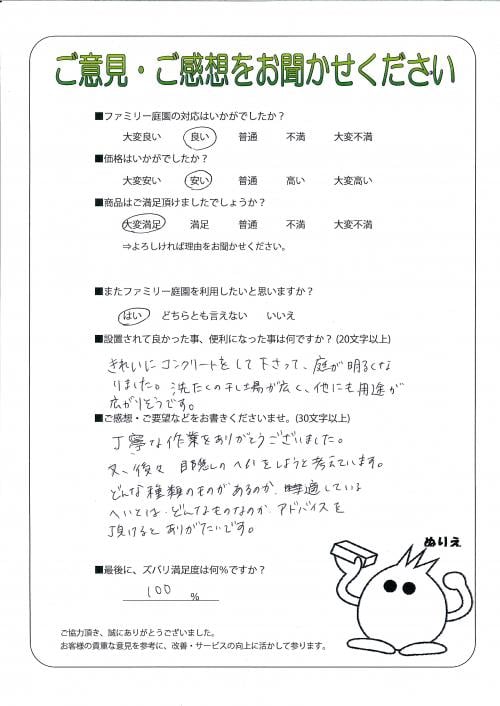 ご意見・ご感想をお聞かせください
■ファミリー庭園の対応はいかがでしたか？
大変良い 良い 普通 不満 大変不満
■価格はいかがでしたか？
大変安い 安い 普通 高い 大変高い
■商品はご満足頂けましたでしょうか？
大変満足 満足 普通 不満 大変不満
⇒よろしければ理由をお聞かせください。
■またファミリー庭園を利用したいと思いますか？
はい どちらとも言えない いいえ
■設置されて良かった事、便利になった事は何ですか？(20文字以上)
きれいにコンクリートをして下さって、庭が明るくな
りました。洗たくの干し場が広く、他にも用途が
広がりそうです。
■ご感想・ご要望などをお書きくださいませ。(30文字以上)
丁寧な作業をありがとうございました。
又、後々 目隠しのへいをしようと考えています。
どんな種類のものがあるのか、適している
へいとは、どんなものなのか、アドバイスを
頂けるとありがたいです。
ぬりえ
■最後に、ズバリ満足度は何％ですか？
100 %
ご協力頂き、誠にありがとうございました。
お客様の貴重な意見を参考に、改善・サービスの向上に活かして参ります。